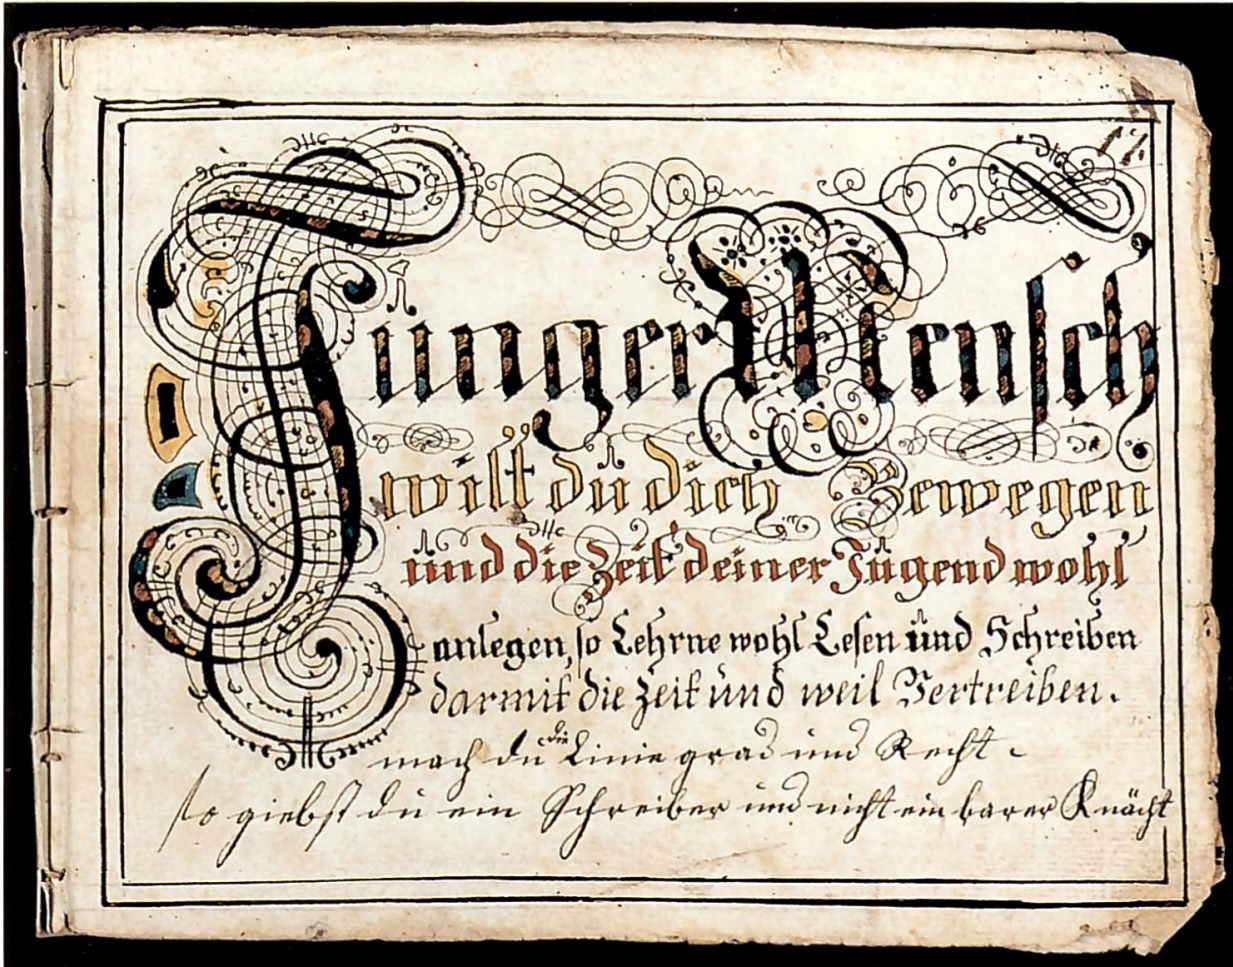 Jünger Mensch
wilt dü dich Bewegen
ünd die Zeit deiner Jügend wohl
anlegen, so Lehrne wohl Lesen ünd Schreiben
darmit die Zeit ünd weil Vertreiben.
mach du die Linie grad und Recht.
so giebst du ein Schreiber und nicht ein barer Knächt